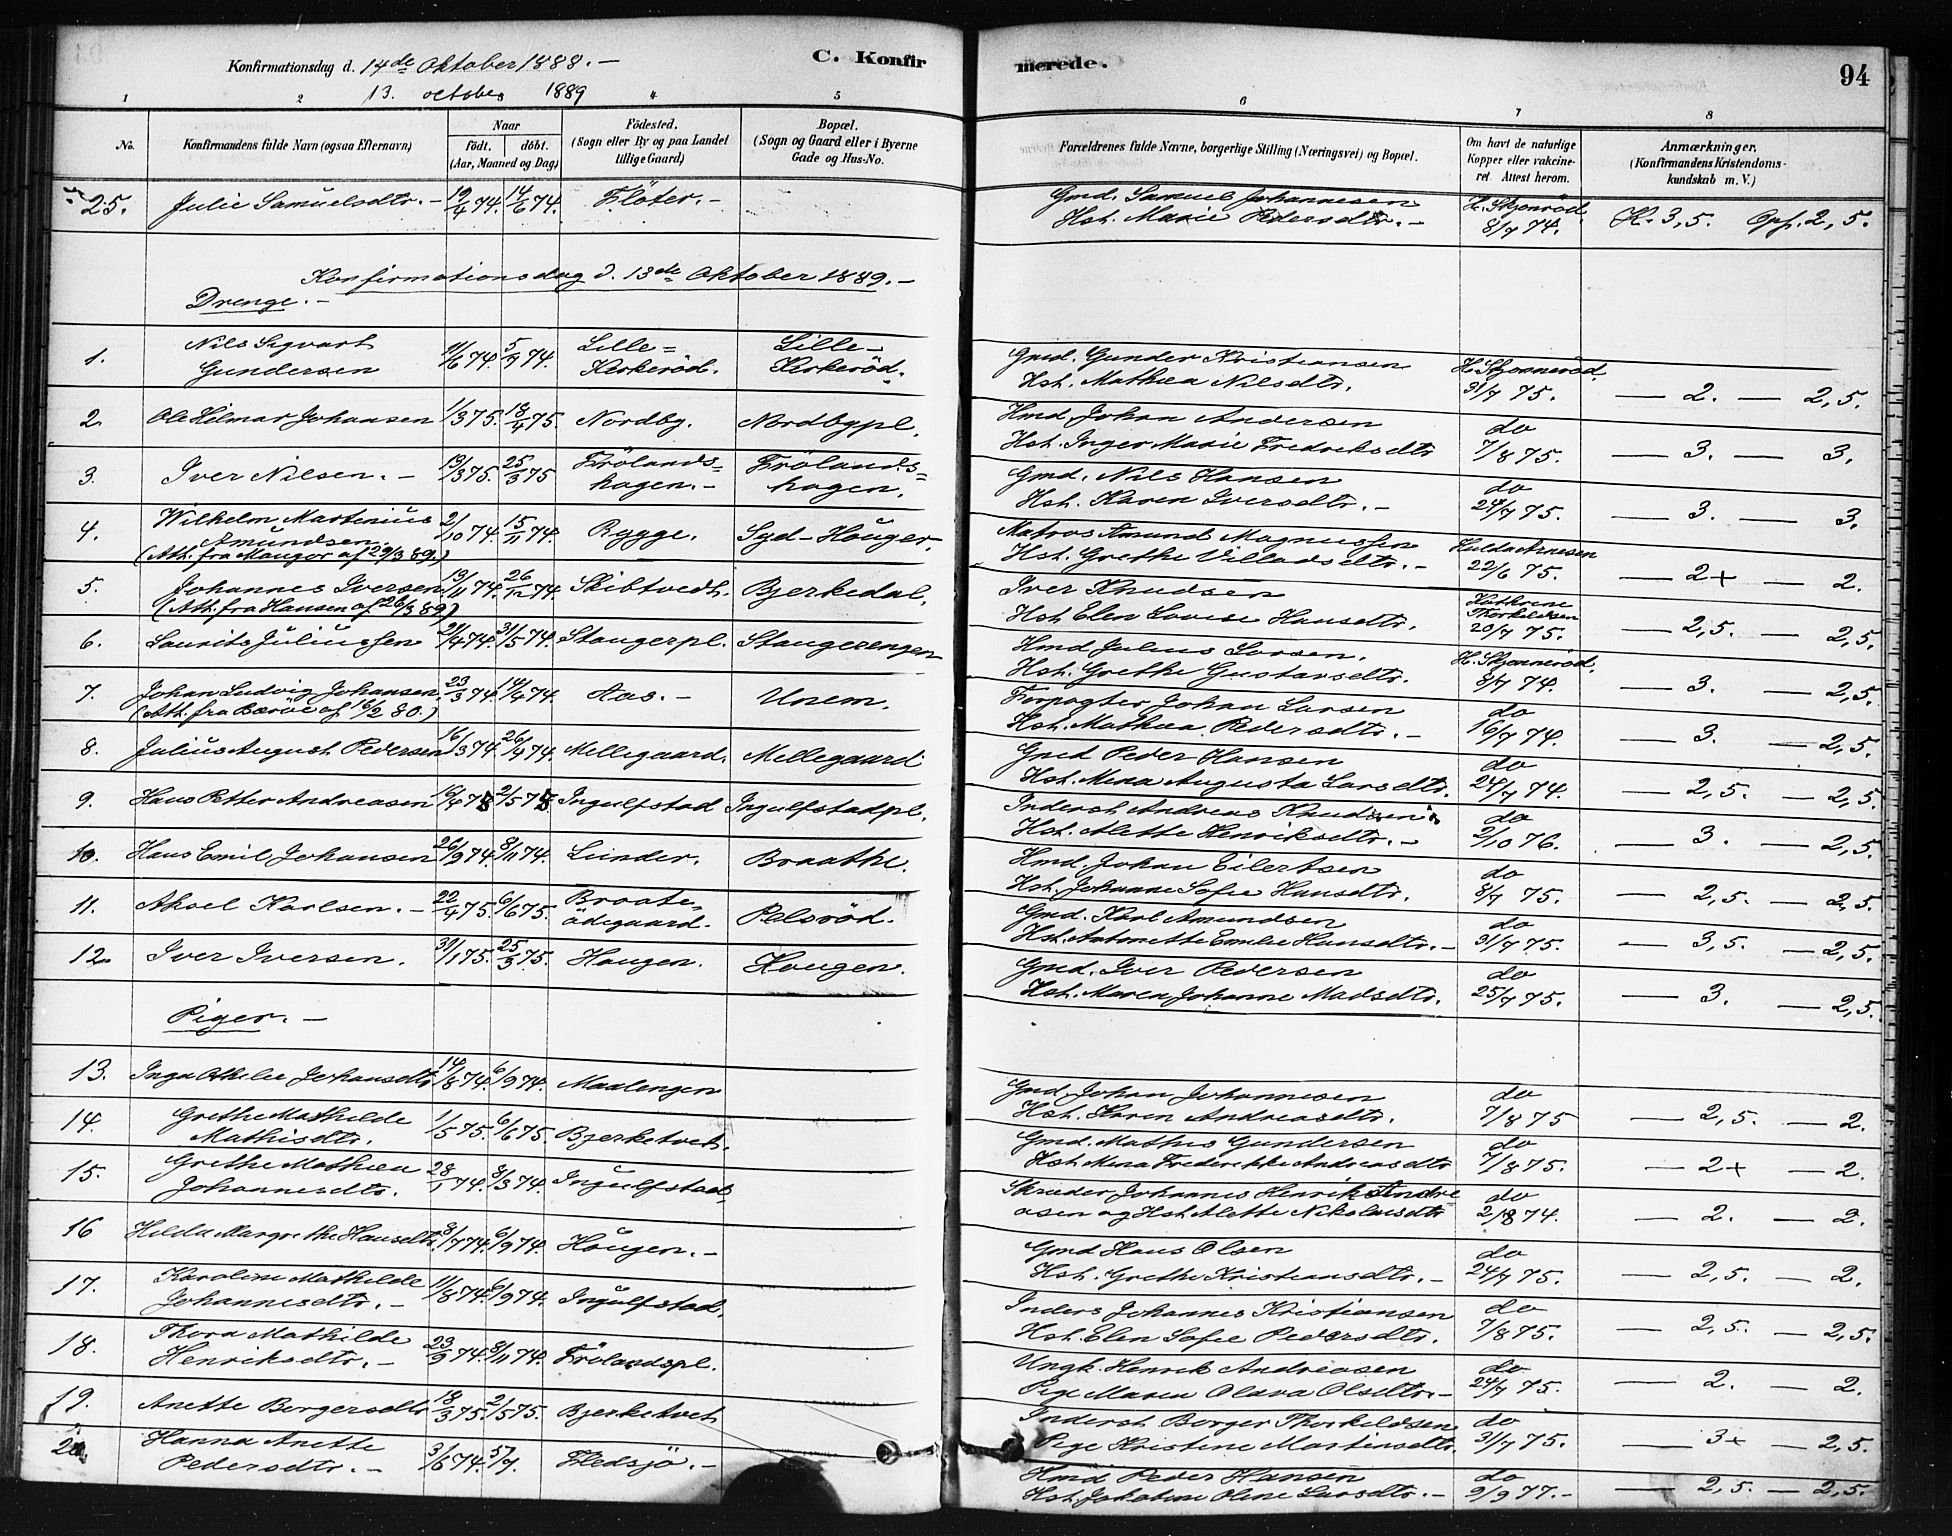 Konfirmationsdag d. 14de Oktober 1888. —
13. october 1889
C. Konfirmerede.
94
1 2 4 5 6 7 8
No.
Konfirmandens fulde Navn (ogsaa Efternavn)
Naar
födt. döbt.
(Aar, Maaned og Dag)
Födested.
(Sogn eller By og paa Landet
tillige Gaard)
Bopæl.
(Sogn og Gaard eller i Byerne
Gade og Hus-No.
Forældrenes fulde Navne, borgerlige Stilling (Næringsvei) og Bopæl.
Om havt de naturlige
Kopper eller vakcine-
ret. Attest herom.
Anmærkninger.
(Konfirmandens Kristendoms-
kundskab m. V.)
25. Julie Samuelsdtr. — 19/4 74. 14/6 74. Flöter. —
Gmd. Samuel Johannesen
Hst. Marie Pedersdtr. —
H. Skjönröd 8/7 74. K. 3,5. Opf. 2,5.
Konfirmationsdag d. 13de Oktober 1889. —
Drenge. —
1. Nils Sigvart
Gundersen
1/6 74. 5/7 74. Lille=
Kirkeröd.
Lille-
Kirkeröd.
Gmd. Gunder Kristiansen
Hst. Mathea Nilsdtr.
H. Skjonneröd. 31/7 75. — 2. — 2,5.
2. Ole Hilmar Johansen 1/3 75. 18/4 75. Nordby. Nordbypl.
Hmd. Johan Andersen
Hst. Inger Marie Fredriksdtr
do 7/8 75. — 3. — 3.
3. Iver Nilsen. — 13/3 75. 25/3 75 Frölands=
hagen. —
Frölands=
hagen.
Gmd. Nils Hansen
Hst. Karen Iversdtr. —
do 24/7 75. — 3. — 3.
4. Wilhelm Martinius
Amundsen.
(Att. fra Maugor af 29/3 89.)
2/10 74. 15/11 74. Rygge. Syd-Hauger.
Matros Amund Magnussen
Hst. Grethe Villadsdtr. —
Hulda Arnesen 22/6 75. — 2+ — 2.
5. Johannes Iversen
(Att. fra Hansen af 26/3 89)
13/11 74. 26/12 74. Skibtvedt. Bjerkedal.
Iver Knudsen
Hst Elen Lovise Hansdtr.
Kathrine
Thorkildsen
20/7 75. — 2,5. — 2,5.
6. Laurits Juliussen 21/4 74. 31/5 74. Staugerpl. Staugerengen
Hmd Julius Larsen.
Hst. Grethe Gustavsdtr.
H. Skjonneröd. 8/7 74. — 3. — 2,5.
7. Johan Ludvig Johansen.
(Att. fra Bæröe af 16/2 80.)
23/3 74. 14/6 74. Aas. — Unem.
Forpagter Johan Larsen
Hst. Mathea Pedersdtr. —
do 16/7 74. — 3. — 2,5.
8. Julius August Pedersen 16/3 74. 26/4 74. Mellegaard. Mellegaard
Gmd Peder Hansen
Hst. Mina Augusta Larsdtr.
do 24/7 74. — 2,5. — 2,5.
9. Hans Petter Andreasen Ingulfstad Ingulfstadpl.
Inderst Andreas Knudsen
Hst. Alette Henriksdtr. —
do 2/10 76. — 3. — 2,5.
10. Hans Emil Johansen 26/9 74. 8/11 74. Lunder. Braathe.
Hmd. Johan Eilertsen
Hst. Johanne Sofie Hansdtr.
do 8/7 75. — 2,5. — 2,5.
11. Aksel Karlsen. — 22/4 75. 6/6 75. Braate=
ödegaard.
Pelsröd.
Gmd. Karl Amundsen
Hst. Antonette Emilie Hansdtr. —
do 31/7 75. — 3,5. — 2,5.
12. Iver Iversen. 31/1 75. 25/3 75. Haugen. Haugen.
Gmd. Iver Pedersen
Hst. Maren Johanne Madsdtr.
do 25/7 75. — 3. — 2,5.
Piger. —
13. Inga Othilie Johansdtr 14/8 74. 6/9 74. Maalengen
Gmd. Johan Johannesen
Hst. Karen Andreasdtr.
do 7/8 75 — 2,5. — 2.
14. Grethe Mathilde
Mathisdtr.
1/5 75. 6/6 75 Bjerketvet.
Gmd. Mathis Gundersen
Hst. Mina Frederikke Andreasdtr
do 7/8 75. — 2+ — 2.
15. Grethe Mathea
Johannesdtr.
28/1 74. 8/3 74. Ingulfstad
Skræder Johannes Henrik Andre=
asen og Hst Alette Nikolaisdtr
do 2/8 74. — 2. — 2.
16 Hilda Margrethe Hansdtr. 8/7 74. 6/9 74. Haugen. —
Gmd Hans Olsen
Hst. Grethe Kristiansdtr. —
do 24/7 75. — 2,5. — 2.
17. Karoline Mathilde
Johannesdtr. —
11/8 74. 6/9 74. Ingulfstad.
Inders Johannes Kristiansen
Hst. Elen Sofie Pedersdtr.
do 7/8 75. — 2,5. — 2,5.
18. Thora Mathilde
Henriksdtr. —
23/9 74. 8/11 74. Frölandspl.
Ungk. Henrik Andreasen
Pige Maren Olava Olsdtr. —
do 24/7 75. — 2. — 2.
19. Anette Borgersdtr 18/3 75. 2/5 75. Bjerketvet
Inderst Borger Thorkildsen
Pige Kristine Martinsdtr.
do 31/7 75. — 3+ — 2,5.
20. Hanna Anette
Pedersdtr. —
3/6 74. 5/7. Fledsjö. —
Hmd Peder Hansen
Hst. Jakobine Oline Larsdtr. —
do 9/9 77. — — 2,5. — 2,5.